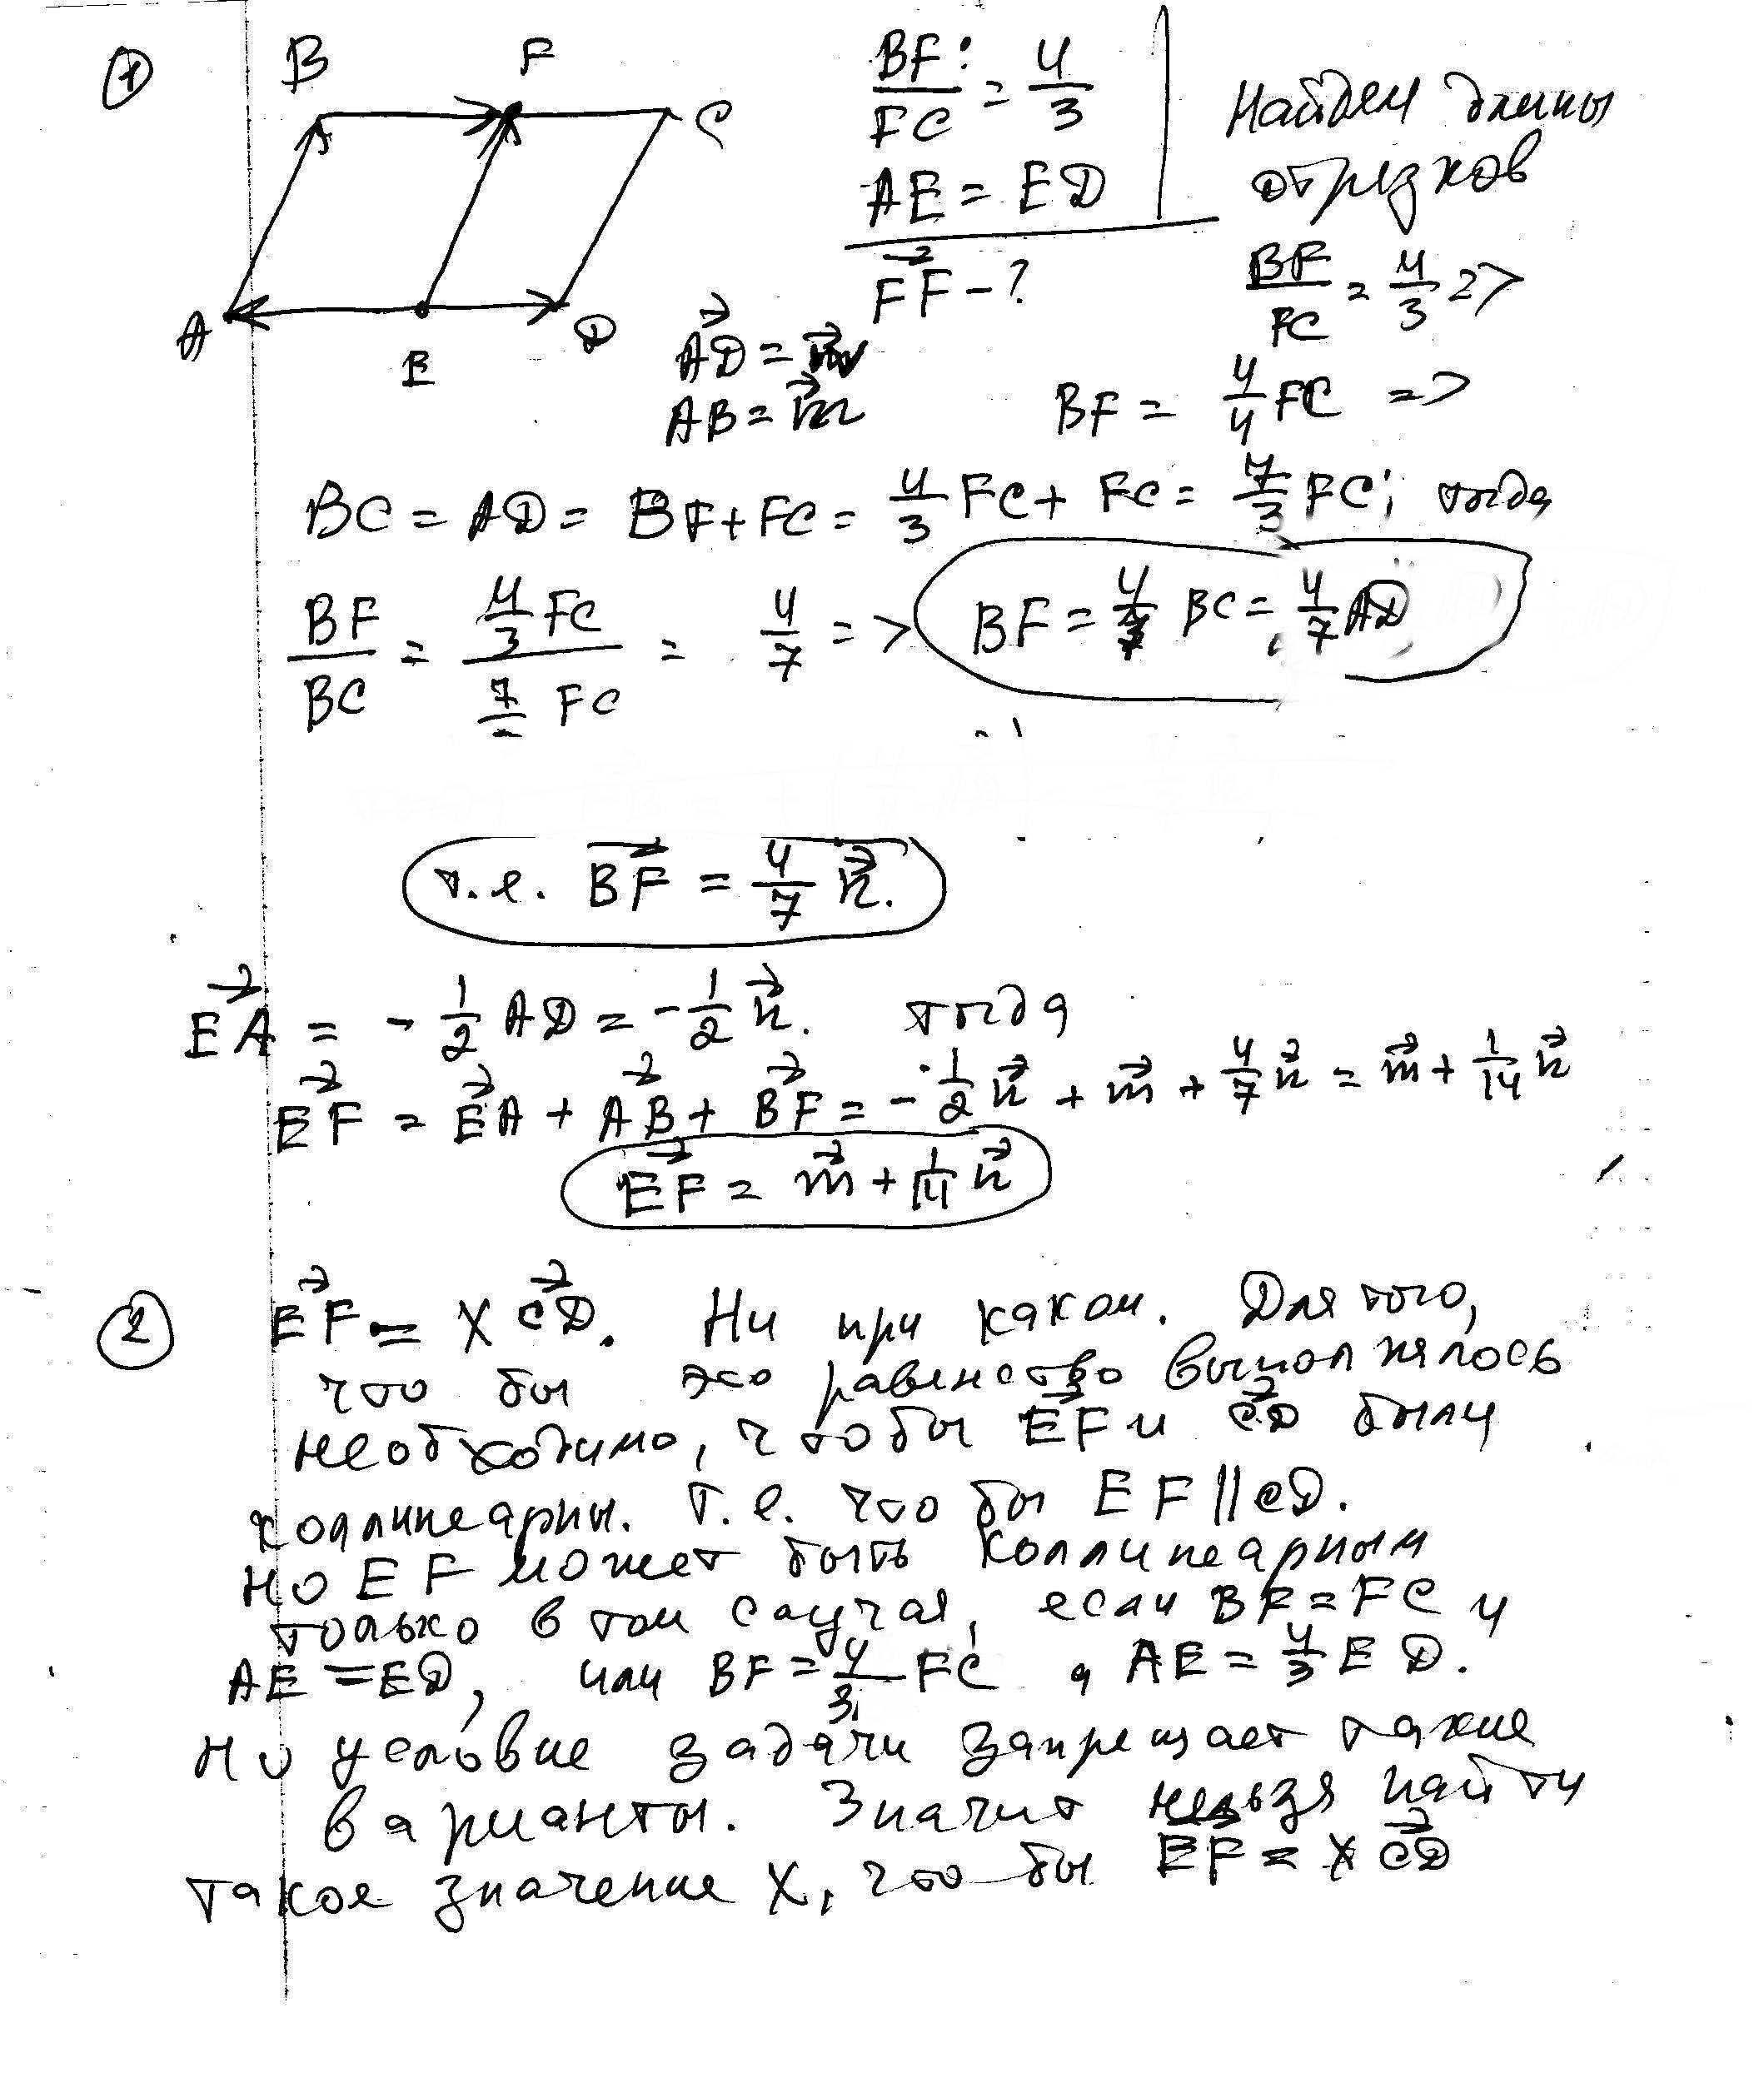 1
B F C
A E D
BF : / FC = 4/3
AE = ED
FF→ - ?
AD→ = n→
AB = m→
Найдем длины
отрезков
BF/FC = 4/3 =>
BF = 4/4 FC =>
BC = AD = BF + FC = 4/3 FC + FC = 7/3 FC; тогда
BF/BC = (4/3 FC)/(7/ FC) = 4/7 => BF = 4/7 BC = 4/7 AD
т.е. BF→ = 4/7 n→.
EA→ = - 1/2 AD = - 1/2 n→. тогда
EF→ = EA→ + AB→ + BF→ = - 1/2 n→ + m→ + 4/7 n→ = m→ + 1/14 n→
EF→ = m→ + 1/14 n→
2 EF→ = x CD→. Ни при каком. Для того,
что бы это равенство выполнялось
необходимо, чтобы EF→ и CD→ были
коллинеарны. Т.е. что бы EF || CD.
Но EF может быть коллинеарным
только в том случая, если BF = FC и
AE = ED, или BF = 4/3 FC а AE = 4/3 ED.
Но условие задачи запрещает такие
варианты. Значит нельзя найти
такое значение x, что бы EF = x CD→